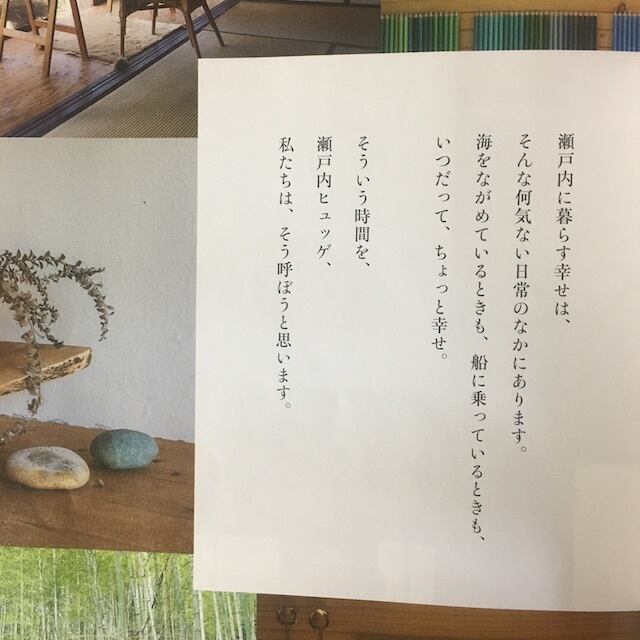 瀬戸内に暮らす幸せは、
そんな何気ない日常のなかにあります。
海をながめているときも、船に乗っているときも、
いつだって、ちょっと幸せ。
そういう時間を、
瀬戸内ヒュッゲ、
私たちは、そう呼ぼうと思います。